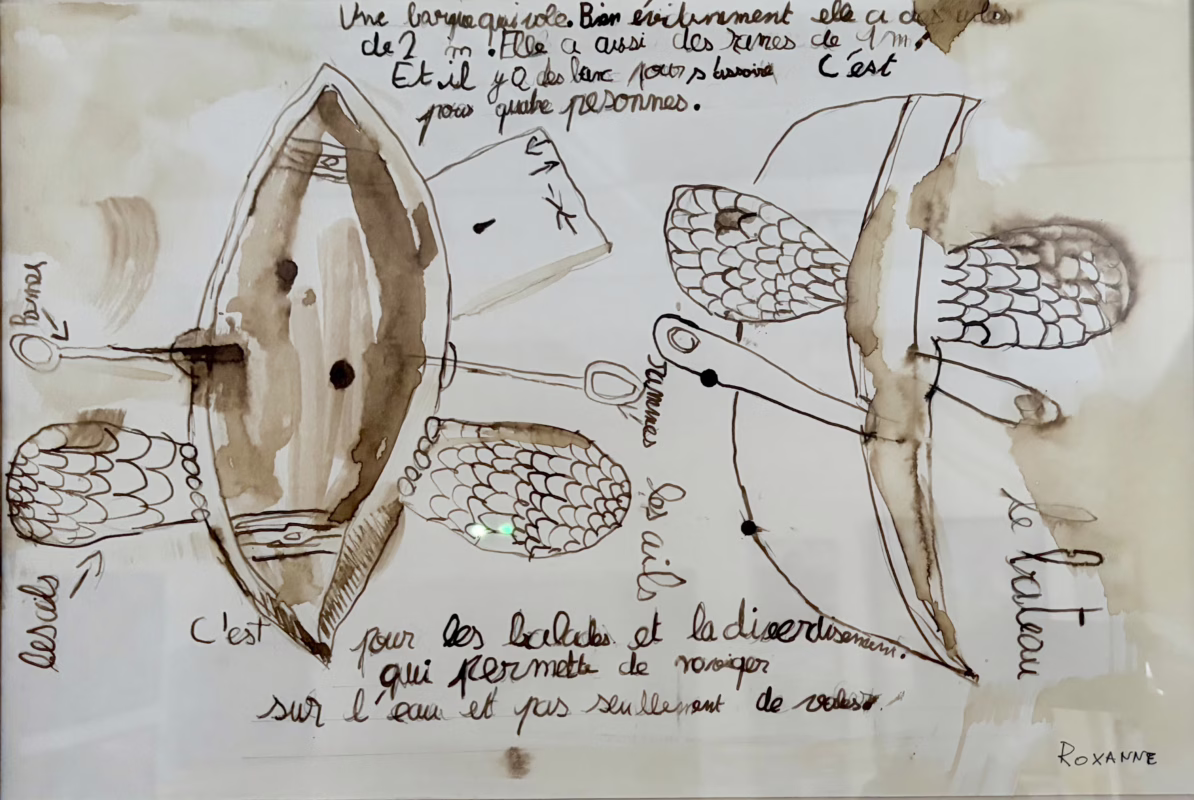 Une barque qui vole. Bien évidemment elle a des ailes
de 2 m. Elle a aussi des rames de 1 m.
Et il y a des banc pour s'assoire C'est
pour quatre pesonnes.
rames
rammes
les ails
les ails
le bateau
C'est pour les balades et la divertisement.
qui permette de naviger
sur l'eau et pas seullement de voler.
ROXANNE